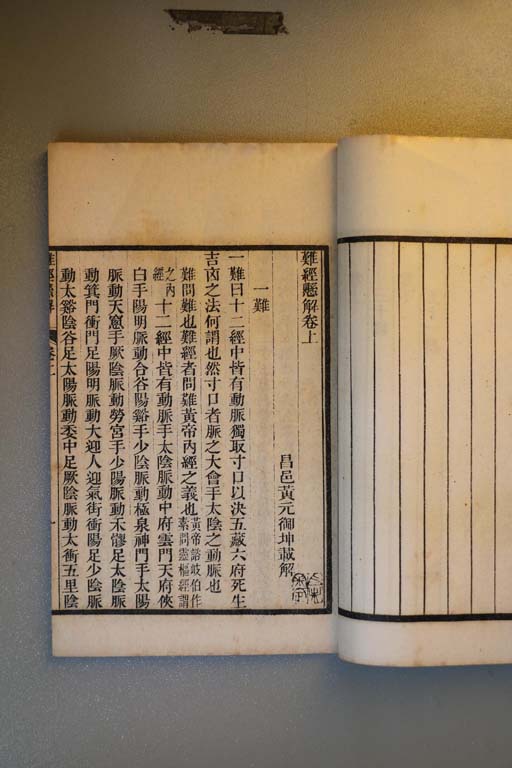 難經懸解卷上
昌邑黃元御坤載解
一難
一難曰十二經中皆有動脈獨取寸口以決五藏六府死生
吉凶之法何謂也然寸口者脈之大會手太陰之動脈也
難問難也難經者問難黃帝內經之義也黃帝諮岐伯作素問靈樞經謂
之內經十二經中皆有動脈手太陰脈動中府雲門天府俠
白手陽明脈動合谷陽谿手少陰脈動極泉神門手太陽
脈動天窻手厥陰脈動勞宮手少陽脈動禾髎足太陰脈
動箕門衝門足陽明脈動大迎人迎氣街衝陽足少陰脈
動太谿陰谷足太陽脈動委中足厥陰脈動太衝五里陰
難經懸解
卷上
一